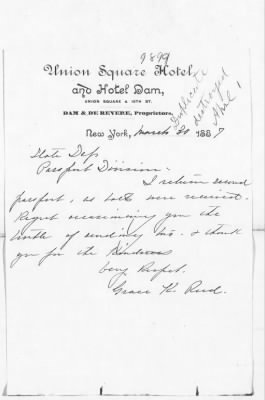 9899
Union Square Hotel,
and Hotel Dam,
UNION SQUARE & 15TH ST.
DAM & DE REVERE, Proprietors.
Duplicate
destroyed
April 1
New York, March 30 1887
State Dep.
Passport Division.
I return second
passport, as both were received.
Regret occasioning you the
trouble of sending two. & thank
you for the Kindness
very Respct.
Grace K.